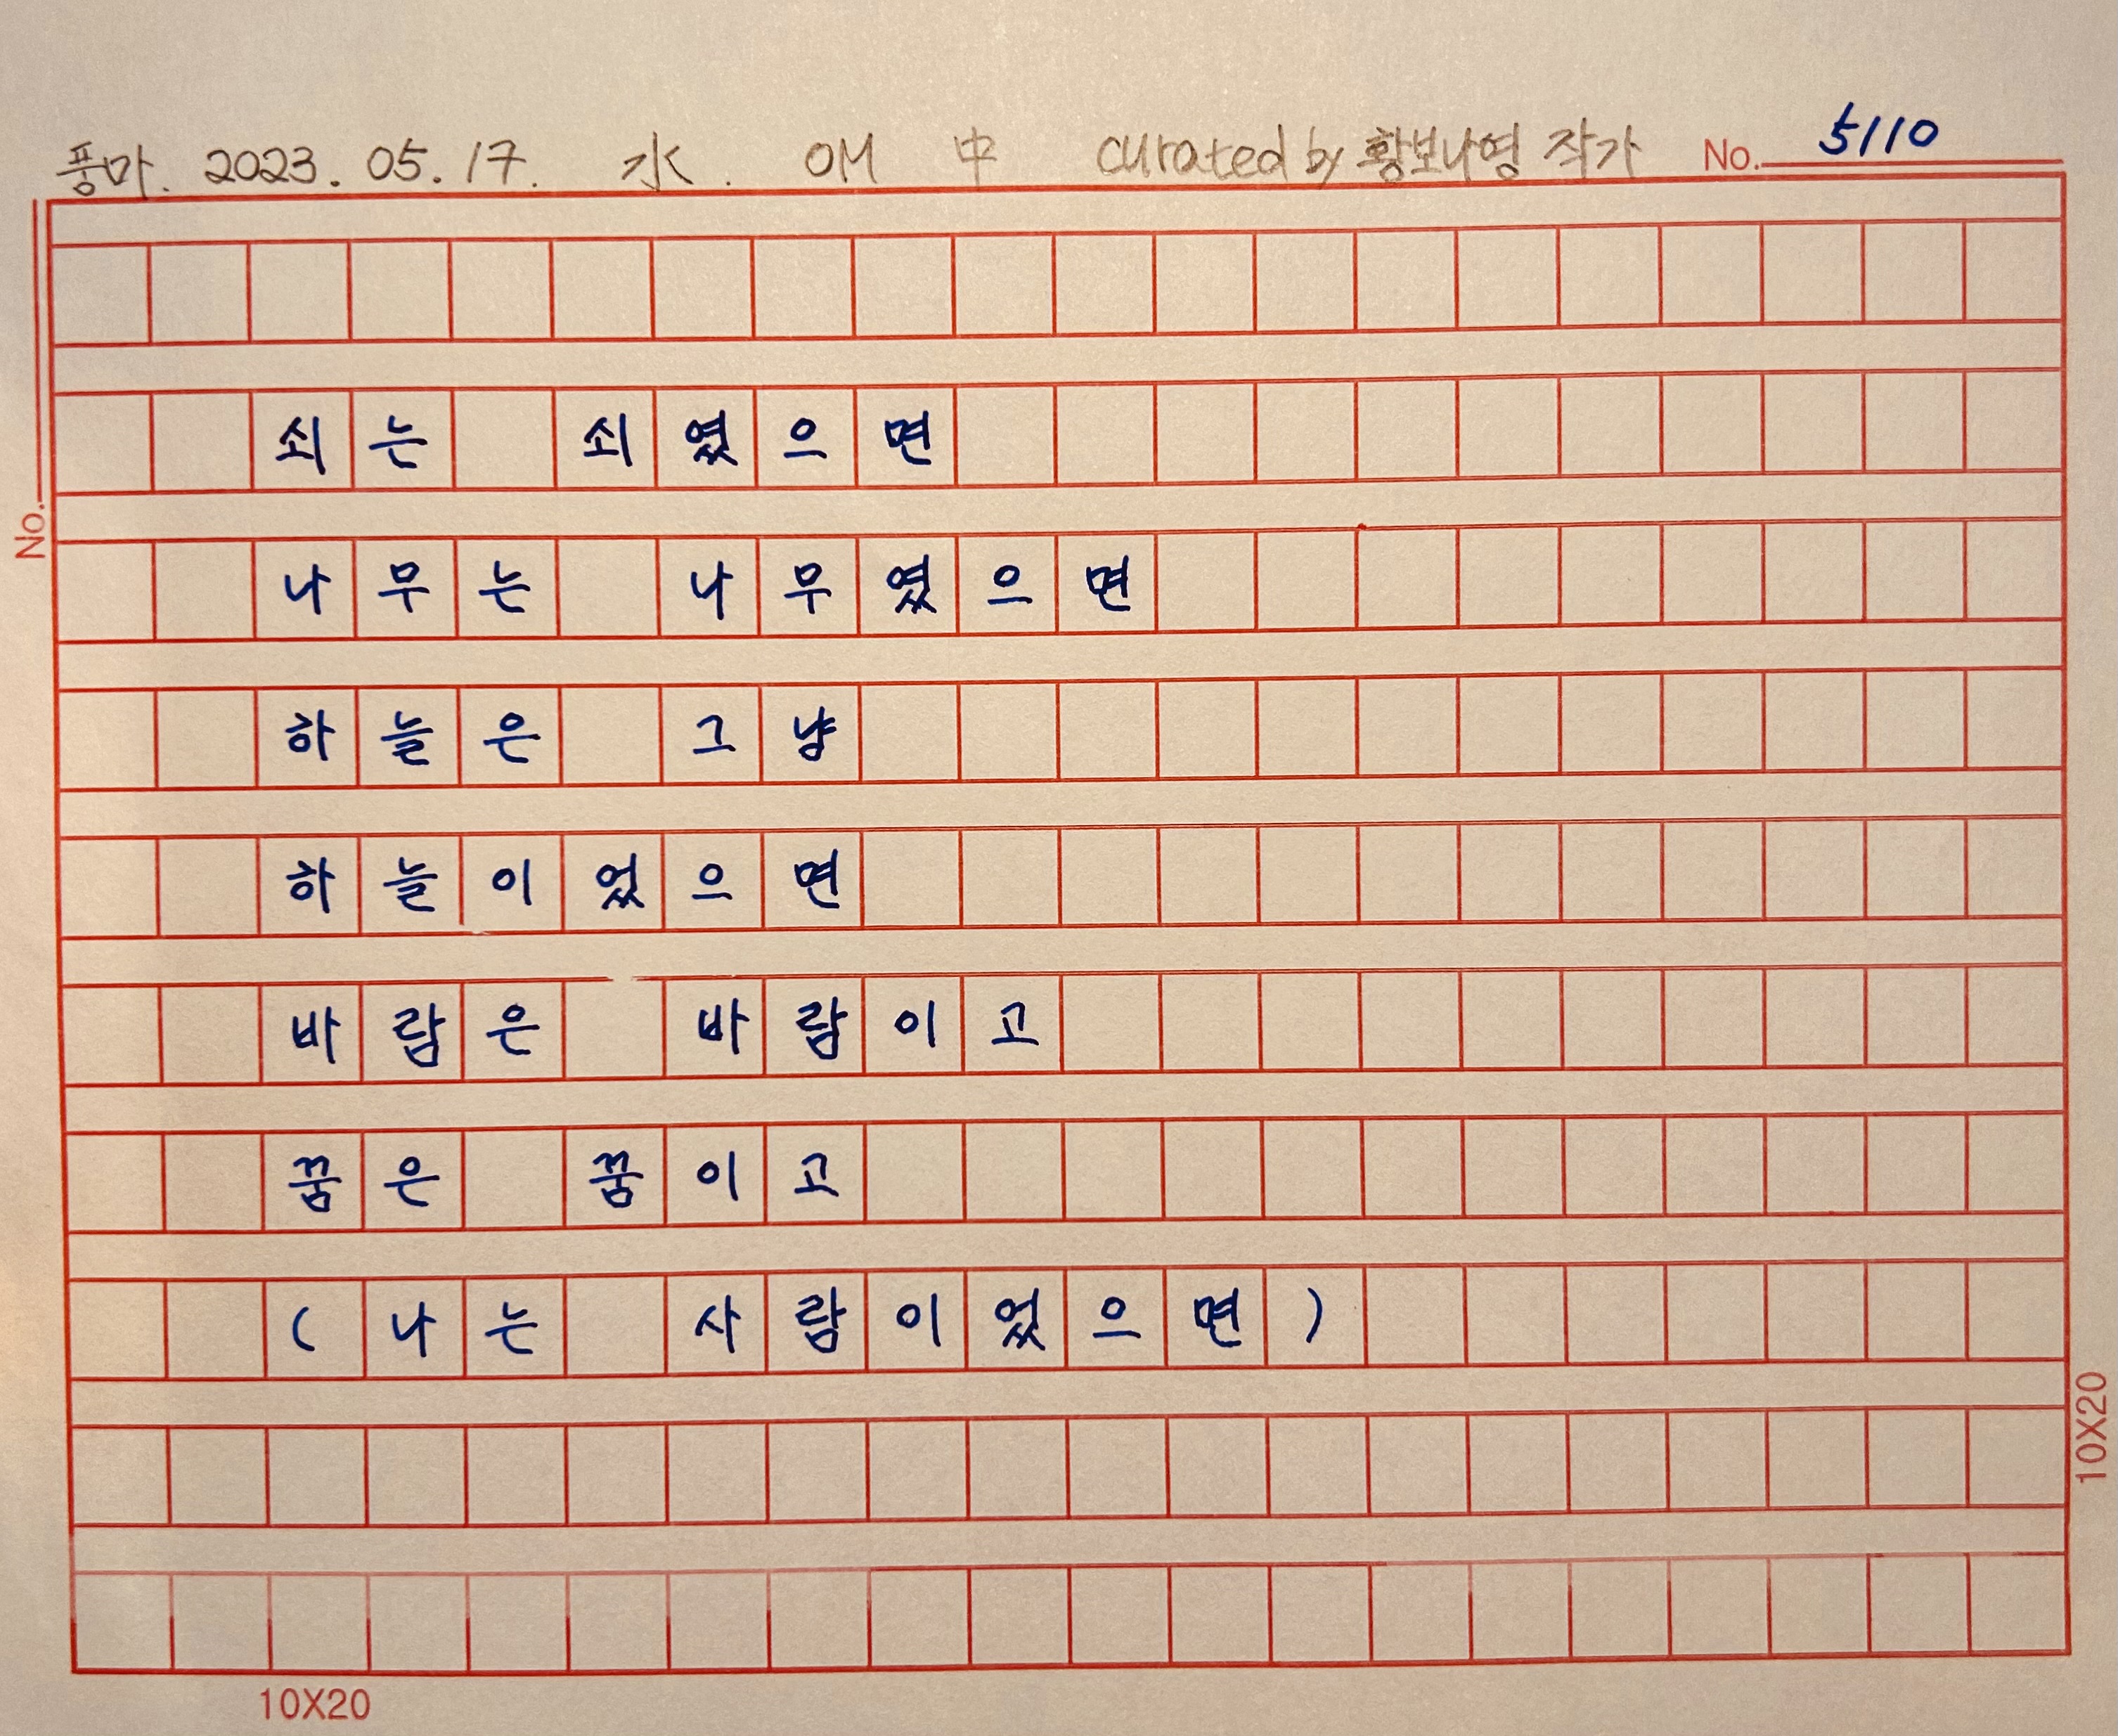 풍마. 2023. 05. 17. 水. OM 中 curated by 황보나영 작가 No. 5110
쇠는 쇠였으면
No.
나무는 나무였으면
하늘은 그냥
하늘이었으면
바람은 바람이고
꿈은 꿈이고
(나는 사람이었으면)
10X20
10X20